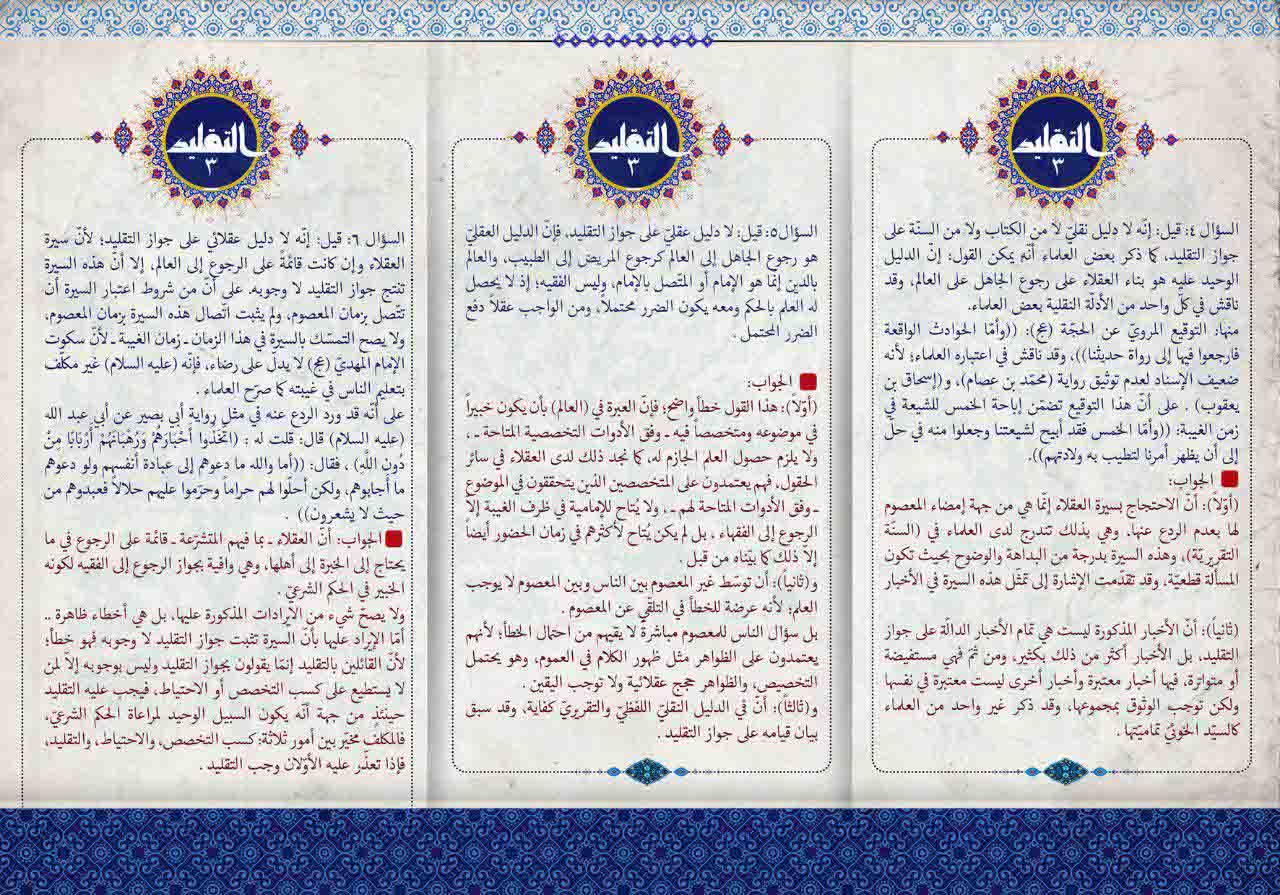 التقليد
٣
السؤال ٤: قيل: إنّه لا دليل نقليّ لا من الكتاب ولا من السنّة على
جواز التقليد، كما ذكر بعض العلماء أنّه يمكن القول: إنّ الدليل
الوحيد عليه هو بناء العقلاء على رجوع الجاهل على العالم، وقد
ناقش في كلّ واحد من الأدلّة النقلية بعض العلماء.
منها: التوقيع المرويّ عن الحجّة (عج): ((وأمّا الحوادث الواقعة
فارجعوا فيها إلى رواة حديثنا))، وقد ناقش في اعتباره العلماء؛ لأنه
ضعيف الإسناد لعدم توثيق رواية (محمّد بن عصام)، و(إسحاق بن
يعقوب) . على أنّ هذا التوقيع تضمّن إباحة الخمس للشيعة في
زمن الغيبة: ((وأمّا الخمس فقد أبيح لشيعتنا وجعلوا منه في حلّ
إلى أن يظهر أمرنا لتطيب به ولادتهم)).
الجواب:
(أوّلاً): أنّ الاحتجاج بسيرة العقلاء إنّما هي من جهة إمضاء المعصوم
لها بعدم الردع عنها، وهي بذلك تندرج لدى العلماء في (السنّة
التقريريّة)، وهذه السيرة بدرجة من البداهة والوضوح بحيث تكون
المسألة قطعيّة، وقد تقدّمت الإشارة إلى تمثّل هذه السيرة في الأخبار
(ثانياً): أنّ الأخبار المذكورة ليست هي تمام الأخبار الدالّة على جواز
التقليد، بل الأخبار أكثر من ذلك بكثير، ومن ثمّ فهي مستفيضة
أو متواترة، فيها أخبار معتبرة وأخبار أخرى ليست معتبرة في نفسها
ولكن توجب الوثوق بمجموعها، وقد ذكر غير واحد من العلماء
كالسيّد الخوئيّ تماميّتها .
التقليد
٣
السؤال٥: قيل: لا دليل عقليّ على جواز التقليد، فإنّ الدليل العقليّ
هو رجوع الجاهل إلى العالم كرجوع المريض إلى الطبيب، والعالم
بالدين إنّما هو الإمام أو المتّصل بالإمام، وليس الفقيه؛ إذ لا يحصل
له العلم بالحكم ومعه يكون الضرر محتملاً، ومن الواجب عقلاً دفع
الضرر المحتمل .
الجواب:
(أوّلاً): هذا القول خطأ واضح؛ فإنّ العبرة في (العالم) بأن يكون خبيراً
في موضوعه ومتخصصاً فيه ـ وفق الأدوات التخصصية المتاحة ـ ،
ولا يلزم حصول العلم الجازم له، كما نجد ذلك لدى العقلاء في سائر
الحقول، فهم يعتمدون على المتخصصين الذين يتحققون في الموضوع
ـ وفق الأدوات المتاحة لهم ـ ، ولا يُتاح للإمامية في ظرف الغيبة إلّا
الرجوع إلى الفقهاء . بل لم يكن يُتاح لأكثرهم في زمان الحضور أيضاً
إلّا ذلك كما بيّناه من قبل .
و(ثانياً): أن توسّط غير المعصوم بين الناس وبين المعصوم لا يوجب
العلم؛ لأنه عرضة للخطأ في التلقي عن المعصوم .
بل سؤال الناس للمعصوم مباشرة لا يقيهم من احتمال الخطأ؛ لأنهم
يعتمدون على الظواهر مثل ظهور الكلام في العموم، وهو يحتمل
التخصيص، والظواهر حجج عقلائية ولا توجب اليقين .
و(ثالثاً): أنّ في الدليل النقليّ اللفظيّ والتقريريّ كفاية، وقد سبق
بيان قيامه على جواز التقليد .
التقليد
٣
السؤال ٦: قيل: إنّه لا دليل عقلائي على جواز التقليد؛ لأنّ سيرة
العقلاء وإن كانت قائمة على الرجوع إلى العالم، إلا أنّ هذه السيرة
تنتج جواز التقليد لا وجوبه، على أنّ من شروط اعتبار السيرة أن
تتّصل بزمان المعصوم، ولم يثبت اتصال هذه السيرة بزمان المعصوم،
ولا يصح التمسّك بالسيرة في هذا الزمان ـ زمان الغيبة ـ لأنّ سكوت
الإمام المهديّ (عج) لا يدلّ على رضاه، فإنّه (عليه السلام) غير مكلّف
بتعليم الناس في غيبته كما صرّح العلماء .
على أنّه قد ورد الردع عنه في مثل رواية أبي بصير عن أبي عبد الله
(عليه السلام) قال: قلت له : (اتَّخَذُوا أَحْبَارَهُمْ وَرُهْبَانَهُمْ أَرْبَابًا مِنْ
دُونِ اللَّهِ) ، فقال: ((أما والله ما دعوهم إلى عبادة أنفسهم ولو دعوهم
ما أجابوهم، ولكن أحلّوا لهم حراماً وحرّموا عليهم حلالاً فعبدوهم من
حيث لا يشعرون)) .
الجواب: أنّ العقلاء ـ بما فيهم المتشرّعة ـ قائمة على الرجوع في ما
يحتاج إلى الخبرة إلى أهلها، وهي وافية بجواز الرجوع إلى الفقيه لكونه
الخبير في الحكم الشرعيّ .
ولا يصحّ شيء من الإيرادات المذكورة عليها، بل هي أخطاء ظاهرة ..
أمّا الإيراد عليها بأنّ السيرة تثبت جواز التقليد لا وجوبه فهو خطأ؛
لأنّ القائلين بالتقليد إنّما يقولون بجواز التقليد وليس بوجوبه إلّا لمن
لا يستطيع على كسب التخصص أو الاحتياط، فيجب عليه التقليد
حينئذٍ من جهة أنّه يكون السبيل الوحيد لمراعاة الحكم الشرعيّ،
فالمكلف مخيّر بين أمور ثلاثة: كسب التخصص، والاحتياط، والتقليد،
فإذا تعذّر عليه الأوّلان وجب التقليد .